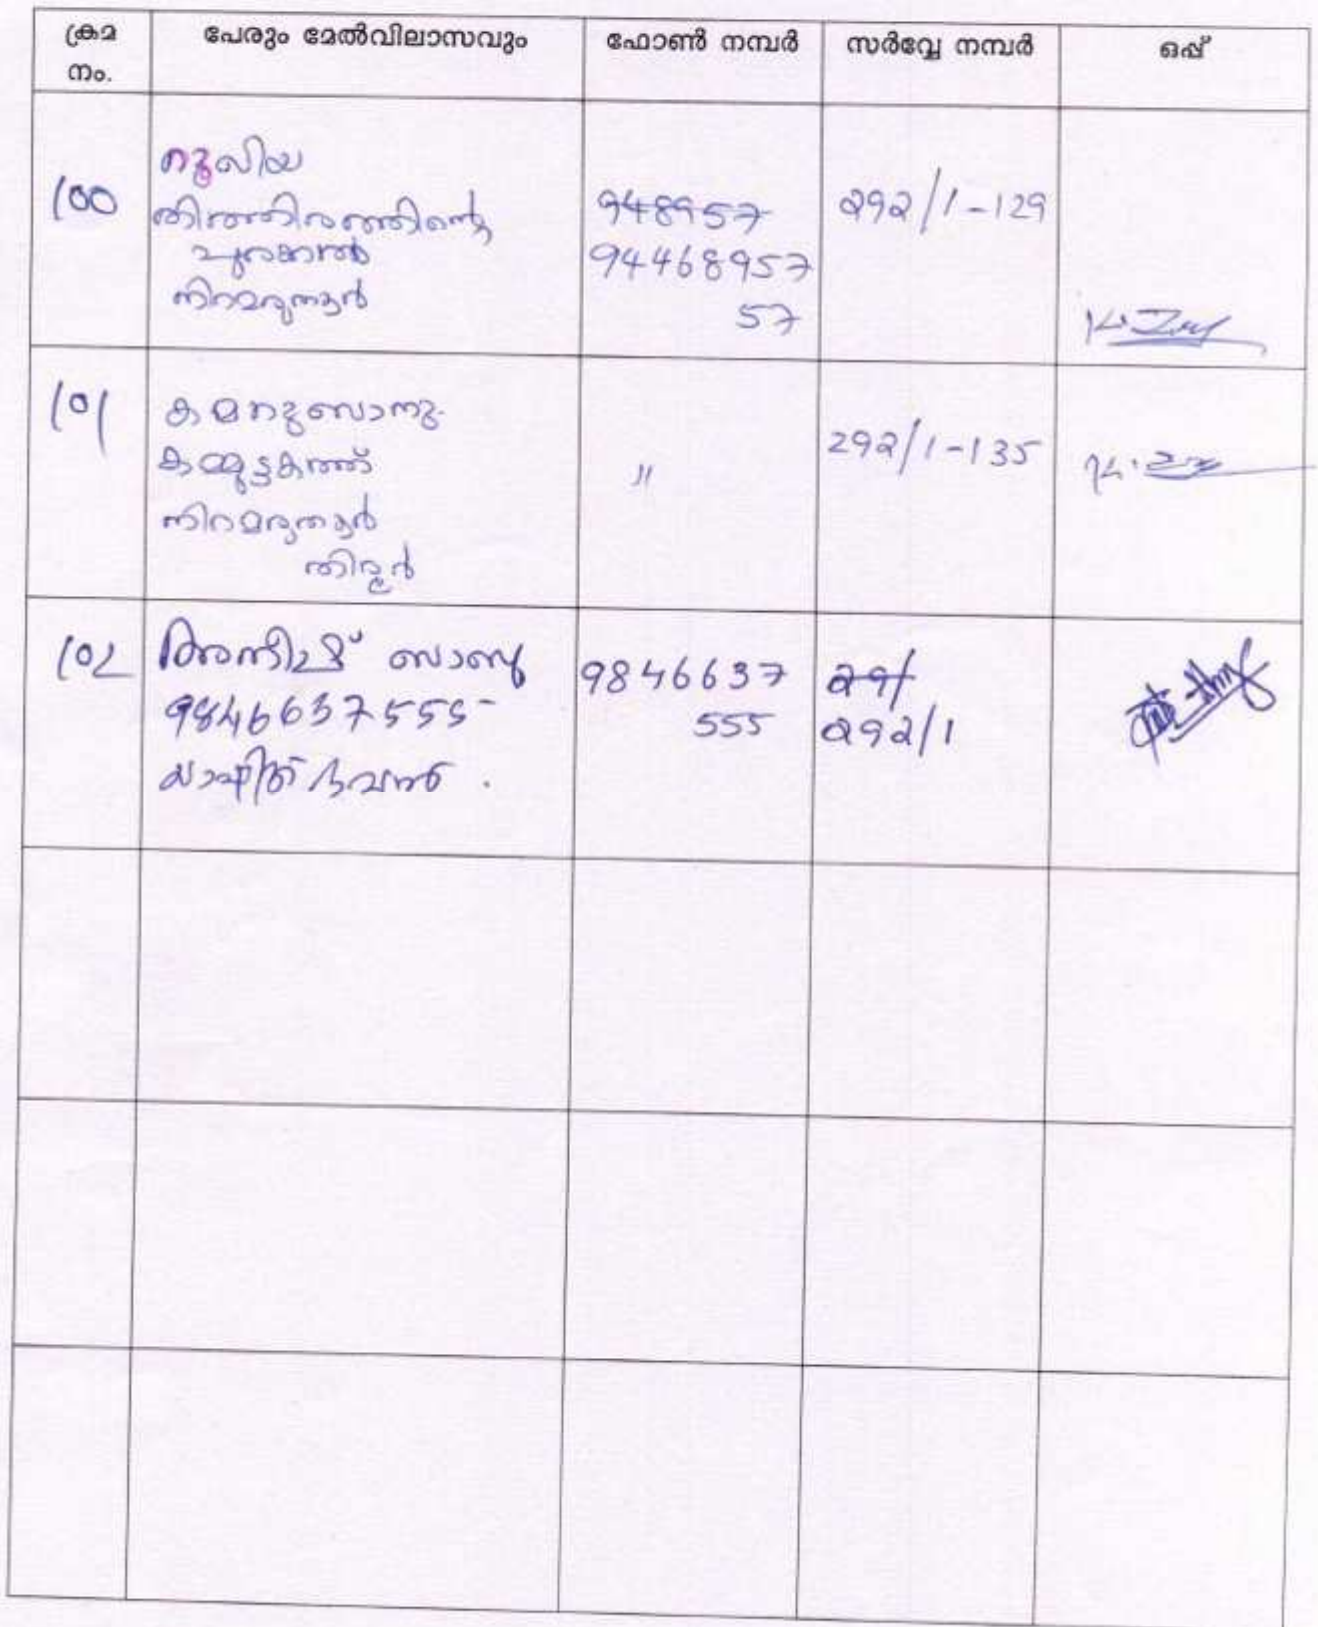 ക്രമ നം. പേരും മേൽവിലാസവും ഫോൺ നമ്പർ സർവ്വേ നമ്പർ ഒപ്പ്
100
റൂഖിയ
പുരക്കൽ
നിറമരുതൂർ
948957
94468957
57
292/1-129
101
കമറുബാനു
കമ്മുട്ടകത്ത്
നിറമരുതൂർ
തിരൂർ
〃
292/1-135
102
ബാബു
9846637555
9846637
555
29/
292/1